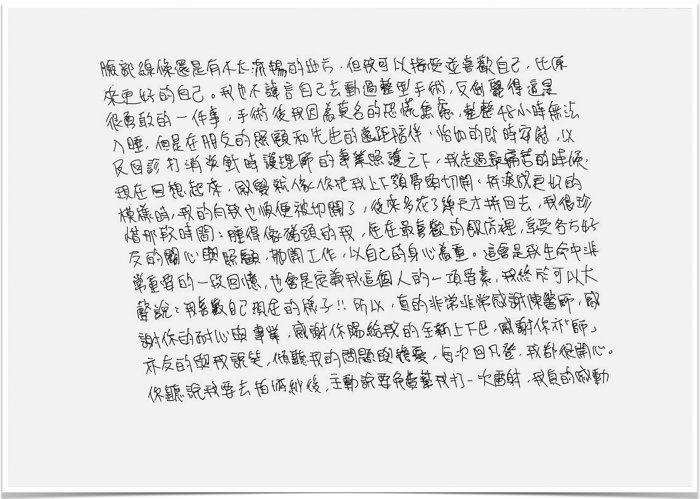 臉部線條還是有不太流暢的地方,但我可以接受並喜歡自己,比原
來更好的自己。我也不諱言自己去動過整型手術,反倒覺得這是
很勇敢的一件事,手術後我因為莫名的恐慌焦慮,整整48小時無法
入睡,但是在朋友的照顧和先生的遠距陪伴、怡如的即時安慰,以
及回診打消炎針時護理師的專業照護之下,我走過最痛苦的時候,
現在回想起來,感覺就像你把我上下顎骨頭切開、拼湊成更好的
模樣時,我的自我也順便被切開了,後來多花了幾天才拼回去,我很珍
惜那段時間:腫得像豬頭的我,住在最喜歡的飯店裡,享受各方好
友的關心與照顧,拋開工作,以自己的身心為重。這會是我生命中非
常重要的一段回憶,也會是定義我這個人的一項要素,我終於可以大
聲說:我喜歡自己現在的樣子!!所以,真的非常非常感謝陳醫師,感
謝你的耐心與專業,感謝你賜給我的全新上下巴,感謝你亦「師」
亦友的與我說笑,傾聽我的問題與擔憂,每次回凡登,我都很開心。
你聽說我要去拍婚紗後,主動說要免費幫我打一次雷射,我真的感動